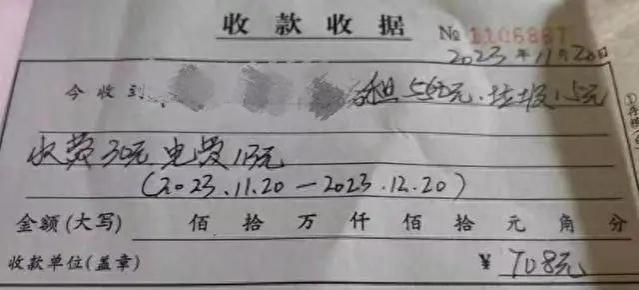 收款收据 № 1106887
2023年11月20日
今收到 租550元.垃圾15元
水费30元 电费113元
(2023.11.20—2023.12.20)
金额(大写) 佰 拾 万 仟 佰 拾 元 角 分
收款单位(盖章) ¥ 708元